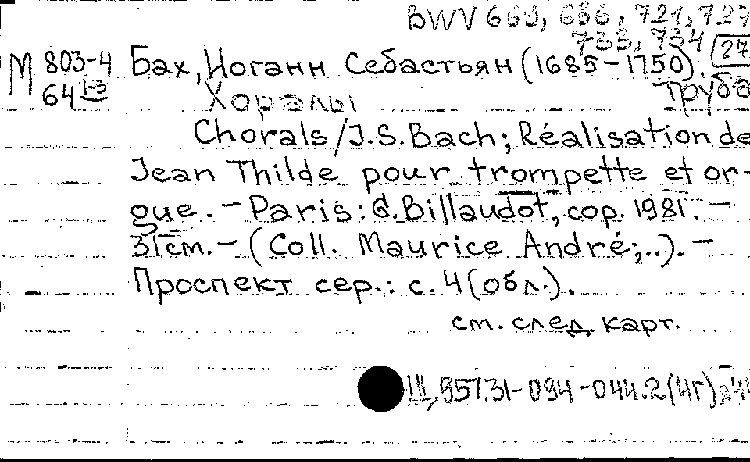 BWV 669, 686, 721, 727
733, 734
М 803-4 Бах, Иоганн Себастьян (1685-1750). 27
64 1-3 Хоралы Труба
Chorals / J.S. Bach; Réalisation de
Jean Thilde pour trompette et or-
gue. - Paris: G. Billaudot, cop. 1981. -
31 cm. - (Coll. Maurice André; ..). -
Проспект сер.: с. 4 (обл.).
см. след. карт.
Щ 957.31-094-044.2(4Г)